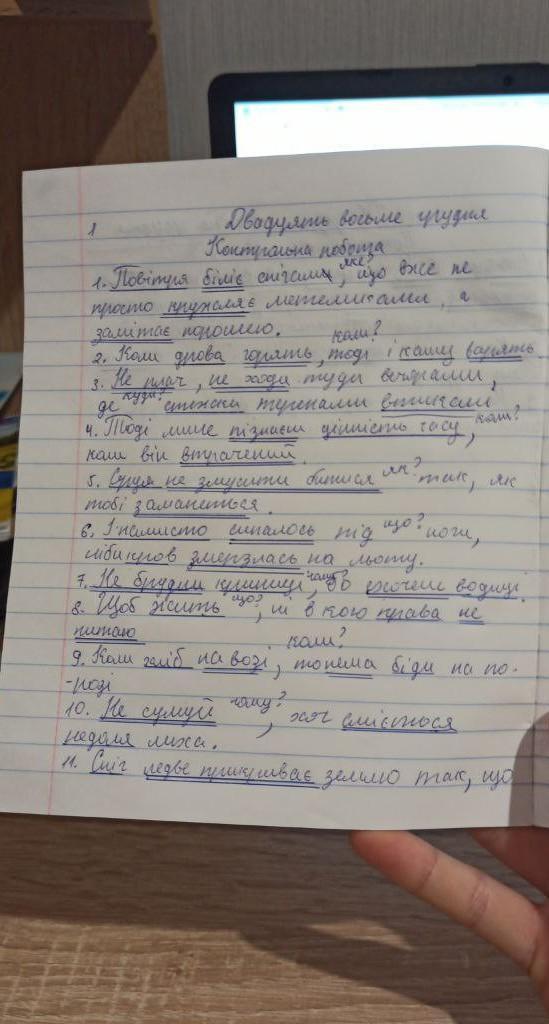 1 Двадцять восьме грудня
Контрольна робота
1. Повітря біліє снігами, яке? що вже не
просто кружляє метеликами, а
замітає порошею.
коли?
2. Коли дрова горять, тоді і кашу варять
3. Не плач, не ходи туди вечорами,
де куди? стежки теренами
коли?
4. Тоді лише пізнаєш цінність часу,
коли він втрачений.
5. Серця не змусити битися як? так, як
тобі заманеться.
6. І намисто сипалось під що? ноги,
ніби кров змерзлась на льоту.
7. Не брудни криниці, чому? бо схочеш водиці.
8. Щоб жить що?, ні в кого права не
питаю коли?
9. Коли хліб на возі, то нема біди на по-
-розі
10. Не сумуй чому?, хоч сміється
недоля лиха.
11. Сніг ледве прикриває землю так, що